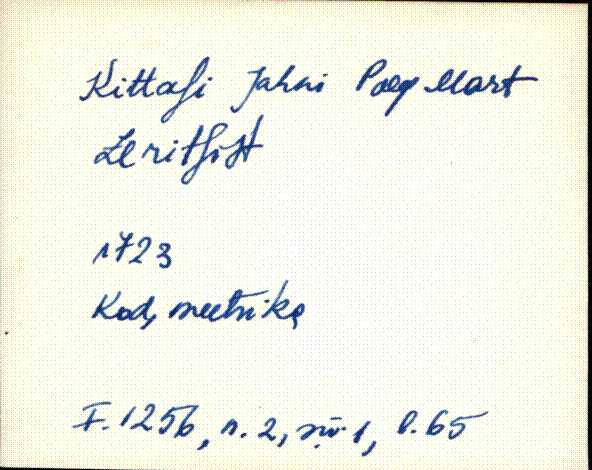 Kittasi Jahni Poeg Mart
Leritsist
1723
Kod, meetrika
F. 1256, n. 2, sü 1, l. 65